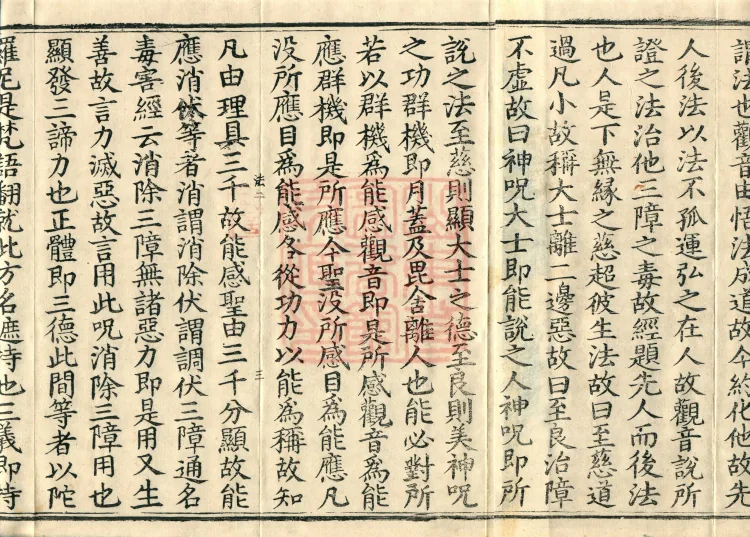 謂法也觀音由悟法成道故今終化他故先
人後法以法不孤運弘之在人故觀音說所
證之法治他三障之毒故經題先人而後法
也人是下無緣之慈超彼生法故曰至慈道
過凡小故稱大士離二邊惡故曰至良治障
不虛故曰神呪大士即能說之人神呪即所
說之法至慈則顯大士之德至良則美神呪
之功群機即月蓋及毘舍離人也能必對所
若以群機為能感觀音即是所感觀音為能
應群機即是所應今聖没所感目為能應凡
没所應目為能感各從功力以能為稱故知
凡由理具三千故能感聖由三千分顯故能
法二
三
應消伏等者消謂消除伏謂調伏三障通名
毒害經云消除三障無諸惡力即是用又生
善故言力滅惡故言用此呪消除三障用也
顯發三諦力也正體即三德此間等者以陀
羅尼是梵語翻就此方名遮持也二義即持